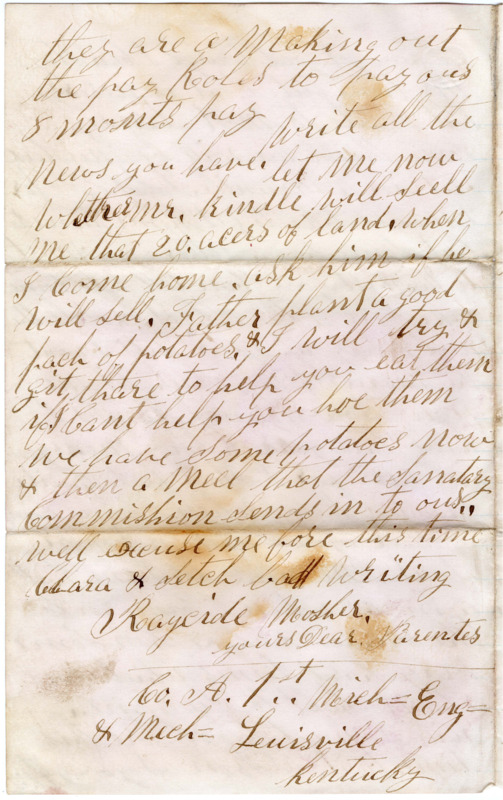 they are a Making out
the pay Roles to pay ous
8 monts pay write all the
news you have. let me now
Whether mr. kindle will seell
me that 20. acers of land. when
I Come home. ask him if he
will sell. Father plant a good
pach of potatoes. & I will try &
git thare to help you eat them
if I Cant help you hoe them
we have some potatoes now
& then a Meel that the Sanatary
Commishion sends in to ous..
well excuse me fore this time
& bad Writing
Mosher.
yours Dear. Parentes
Co. A. 1st.. Mich= Eng=
& Mech= Leuisville
Kentucky